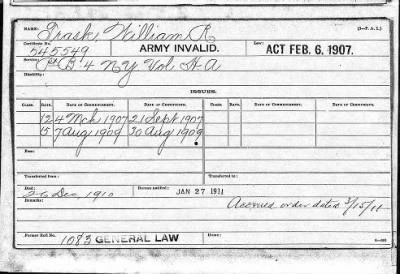 NAME: Trask, William R. (3—P. A. I.)
Certificate No. 545549 ARMY INVALID. Law: ACT FEB. 6, 1907.
Service: B. 4 NY Vol H A
Disability:
ISSUES.
CLASS. RATE. DATE OF COMMENCEMENT. DATE OF CERTIFICATE. CLASS. RATE. DATE OF COMMENCEMENT. DATE OF CERTIFICATE.
12 4 Mch 1907 21 Sept 1907
15 7 Aug 1909 30 Aug 1909
Transferred from: Transferred to:
Died: 26 Dec, 1910 Bureau notified: JAN 27 1911
Remarks: Accrued order dated 3/15/11
Former Roll No. 1083 GENERAL LAW Home: